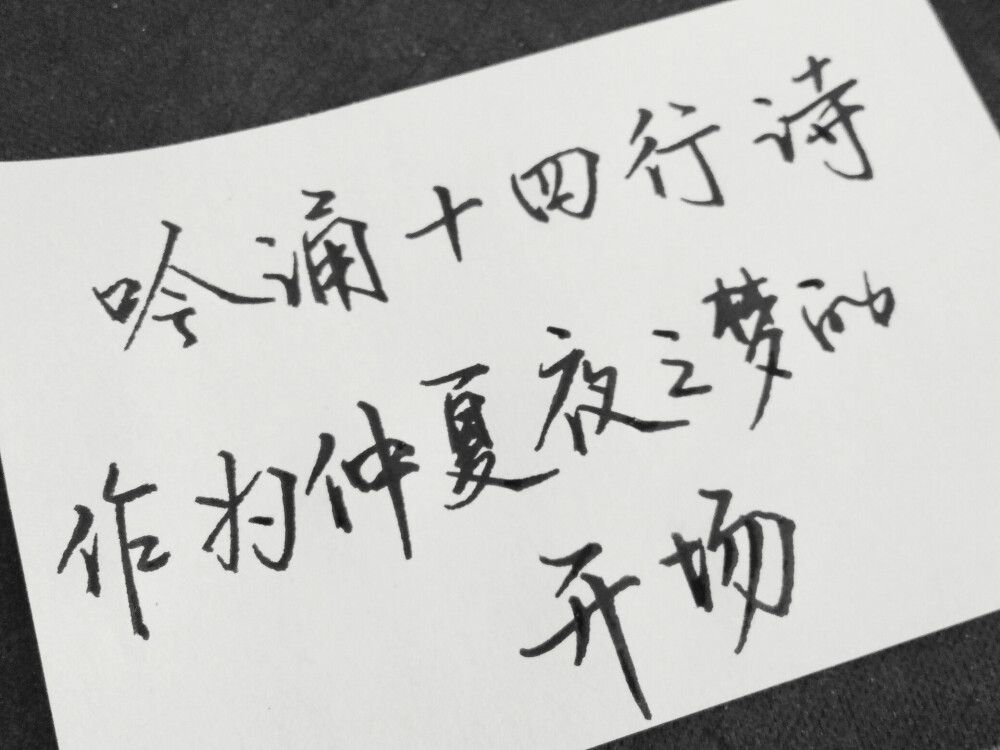 吟诵十四行诗
作为仲夏夜之梦的
开场